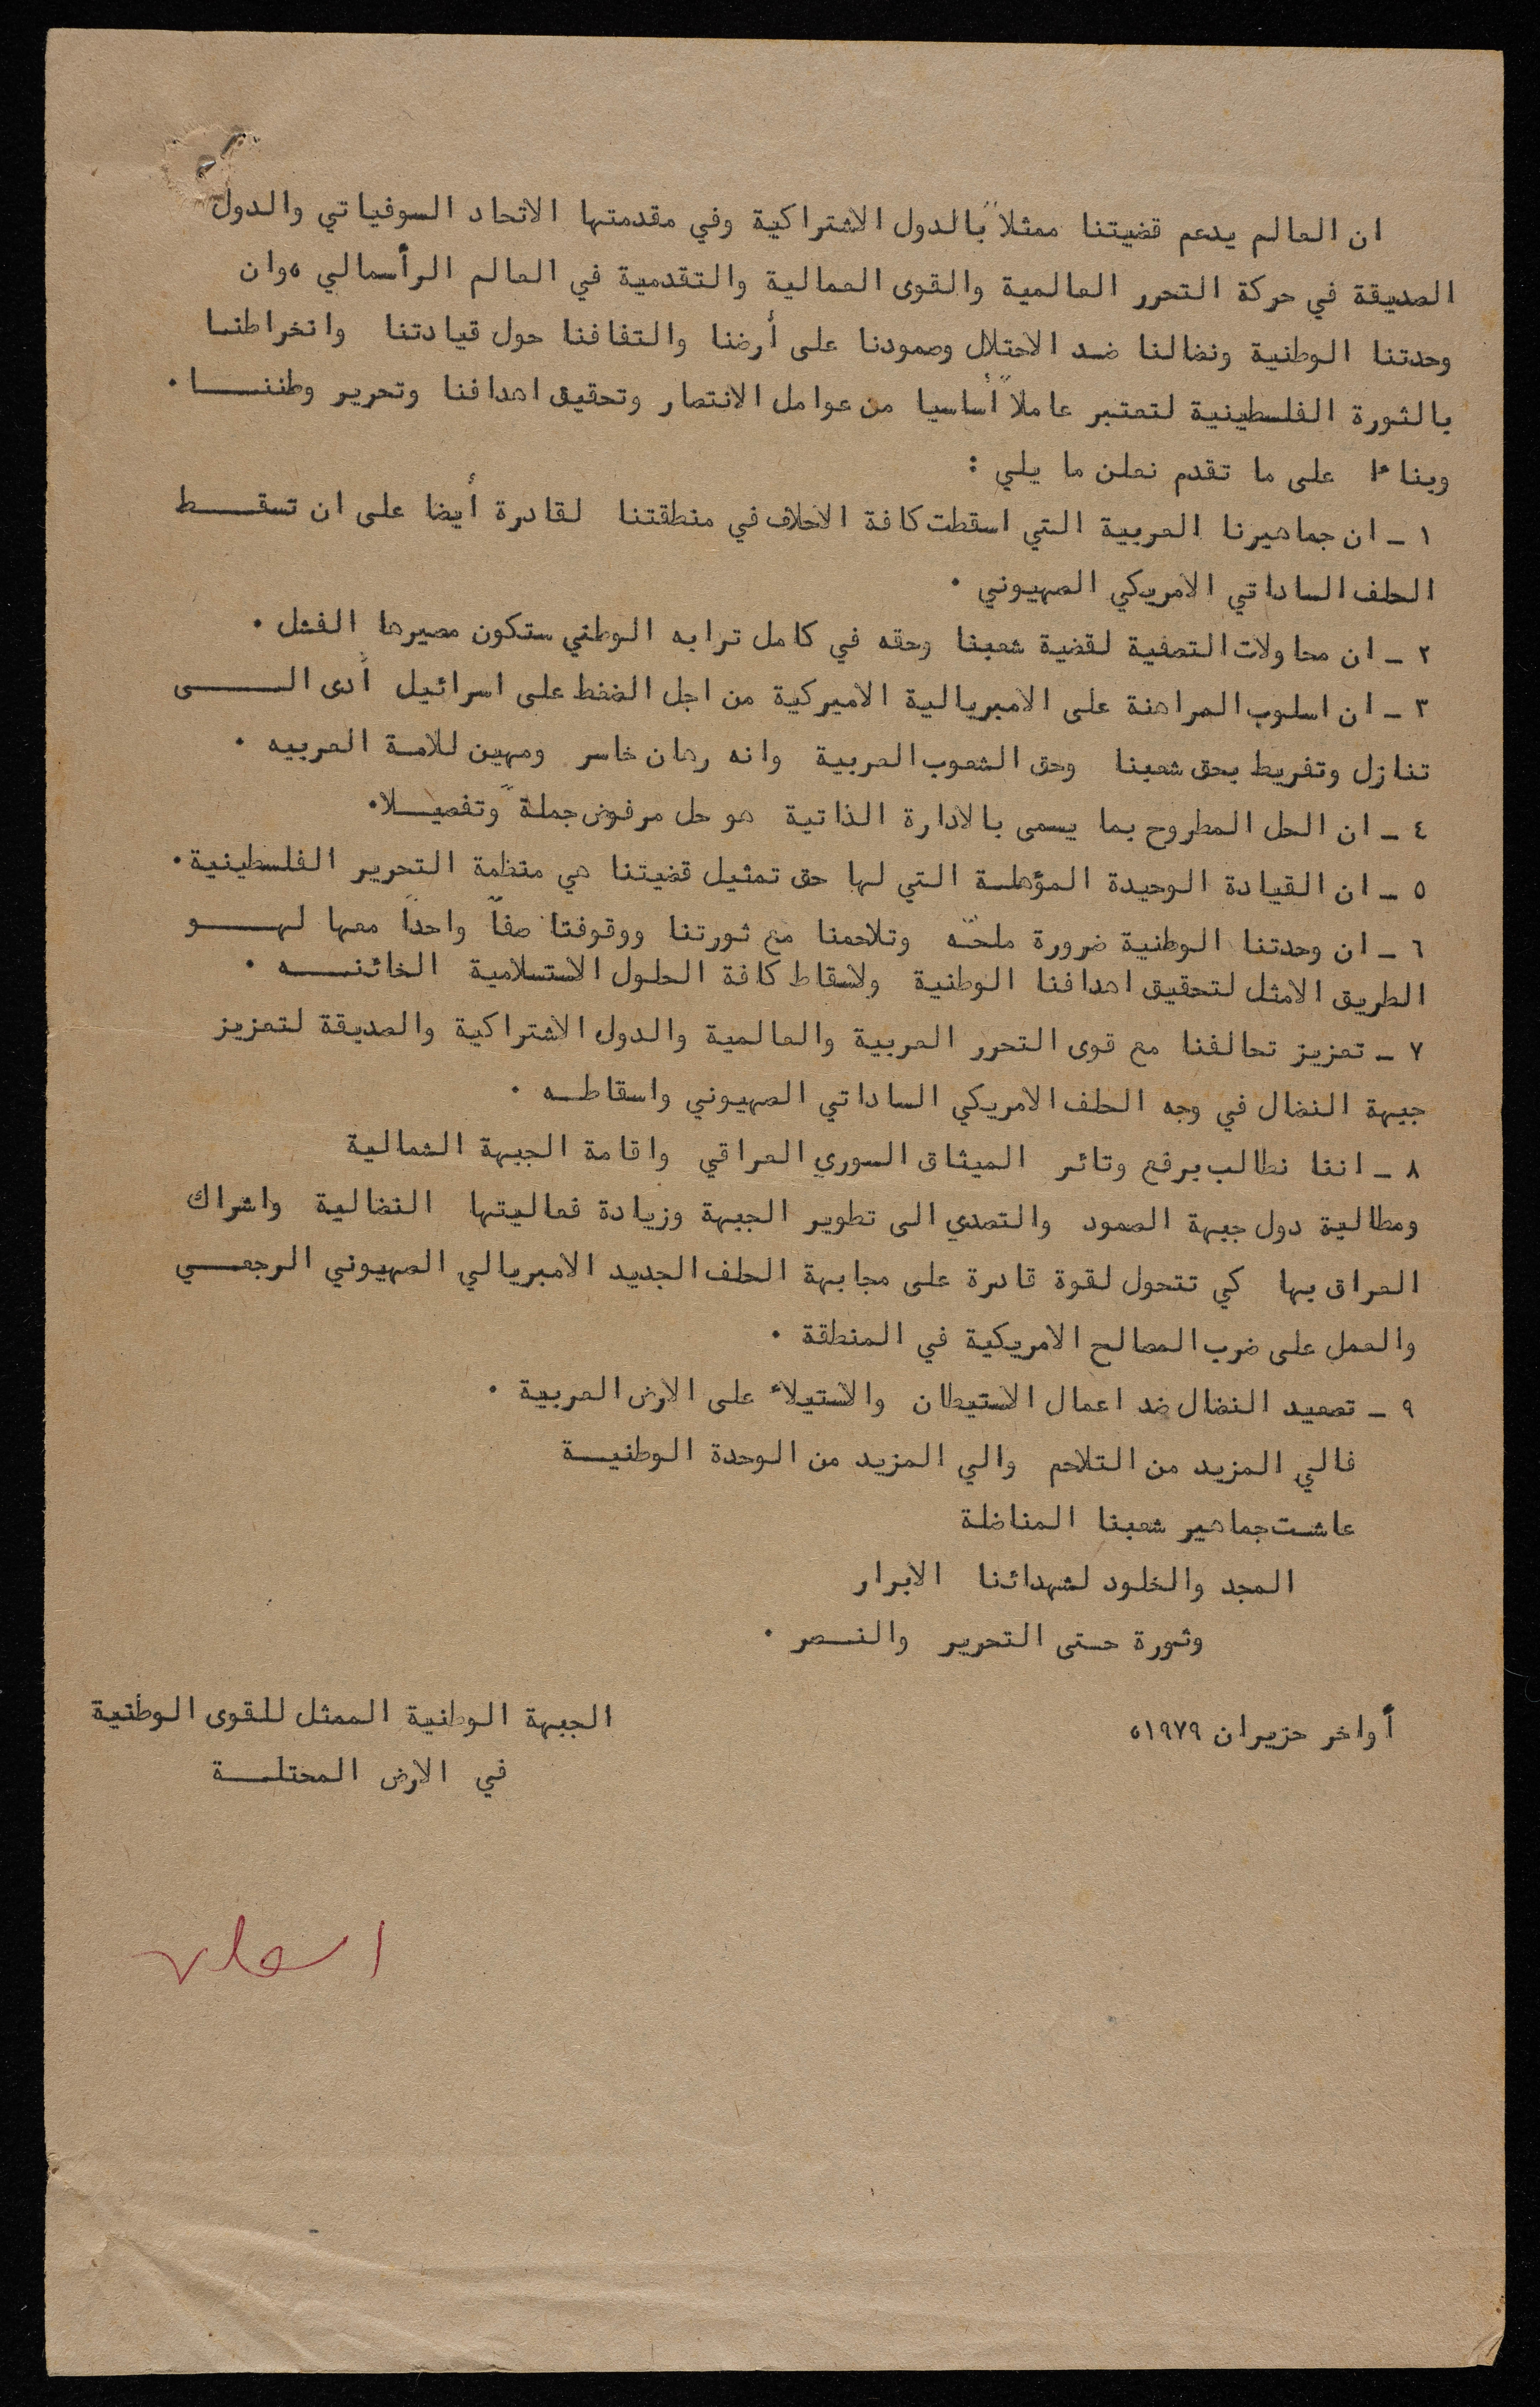 ان العالم يدعم قضيتنا ممثلاً بالدول الاشتراكية وفي مقدمتها الاتحاد السوفياتي والدول
الصديقة في حركة التحرر العالمية والقوى العمالية والتقدمية في العالم الرأسمالي ،وان
وحدتنا الوطنية ونضالنا ضد الاحتلال وصمودنا على أرضنا والتفافنا حول قيادتنا وانخراطنا
بالثورة الفلسطينية لتعتبر عاملاً أساسيا من عوامل الانتصار وتحقيق اهدافنا وتحرير وطننا .
وبناءا على ما تقدم نعلن ما يلي :
١ - ان جماهيرنا العربية التي اسقطت كافة الاحلاف في منطقتنا لقادرة أيضا على ان تسقط
الحلف الساداتي الامريكي الصهيوني .
٢ - ان محاولات التصفية لقضية شعبنا وحقه في كامل ترابه الوطني ستكون مصيرها الفشل .
٣ - ان اسلوب المراهنة على الامبريالية الاميركية من اجل الضغط على اسرائيل أدى الى
تنازل وتفريط بحق شعبنا وحق الشعوب العربية وانه رهان خاسر ومهين للامة العربيه .
٤ - ان الحل المطروح بما يسمى بالادارة الذاتية هو حل مرفوض جملةً وتفصيلا.
٥ - ان القيادة الوحيدة المؤهلة التي لها حق تمثيل قضيتنا هي منظمة التحرير الفلسطينية.
٦ - ان وحدتنا الوطنية ضرورة ملحّه وتلاحمنا مع ثورتنا ووقوفنا صفاً واحداً معها لهو
الطريق الامثل لتحقيق اهدافنا الوطنية ولاسقاط كافة الحلول الاستسلامية الخائنه .
٧ - تعزيز تحالفنا مع قوى التحرر العربية والعالمية والدول الاشتراكية والصديقة لتعزيز
جبهة النضال في وجه الحلف الامريكي الساداتي الصهيوني واسقاطه .
٨ - اننا نطالب برفع وتائر الميثاق السوري العراقي واقامة الجبهة الشمالية
ومطالبة دول جبهة الصمود والتصدي الى تطوير الجبهة وزيادة فعاليتها النضالية واشراك
العراق بها كي تتحول لقوة قادرة على مجابهة الحلف الجديد الامبريالي الصهيوني الرجعي
والعمل على ضرب المصالح الامريكية في المنطقة .
٩ - تصعيد النضال ضد اعمال الاستيطان والاستيلاء على الارض العربية .
فالى المزيد من التلاحم والى المزيد من الوحدة الوطنية
عاشت جماهير شعبنا المناضلة
المجد والخلود لشهدائنا الابرار
وثورة حتى التحرير والنصر .
أواخر حزيران ١٩٧٩،
الجبهة الوطنية الممثل للقوى الوطنية
في الارض المحتلة